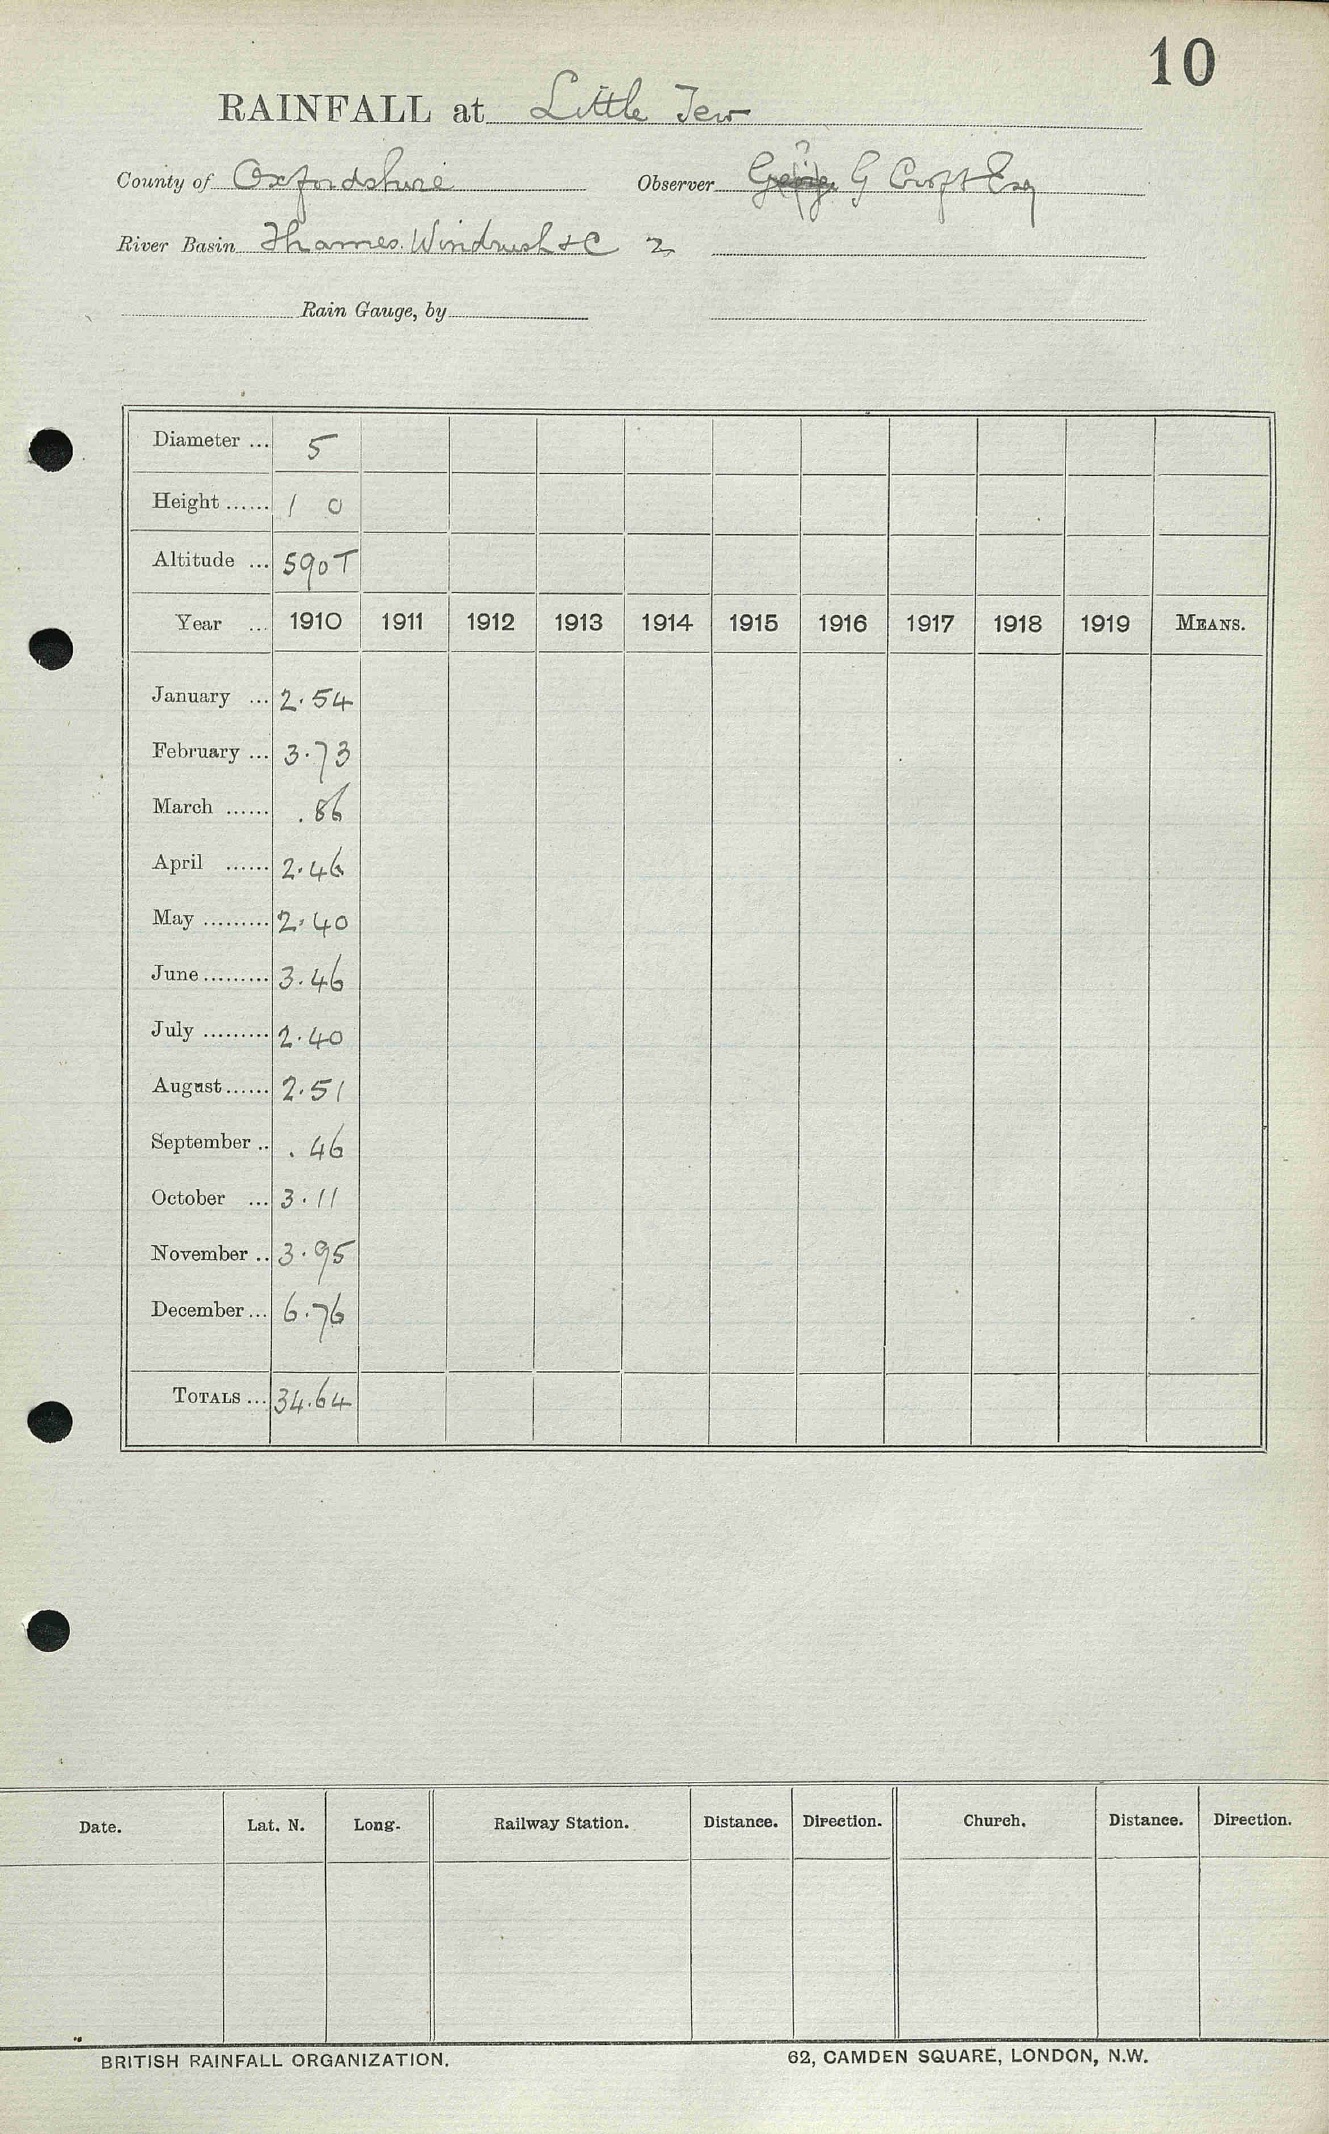 10
RAINFALL at Little Tew
County of Oxfordshire Observer G Croft Esq
River Basin Thames. Windrush &c 2
Rain Gauge, by
Diameter ... 5
Height ...... 1 0
Altitude ... 590T
Year ... 1910 1911 1912 1913 1914 1915 1916 1917 1918 1919 MEANS.
January ... 2.54
February ... 3.73
March ...... .86
April ...... 2.46
May ......... 2.40
June ......... 3.46
July ......... 2.40
August ...... 2.51
September .. .46
October ... 3.11
November .. 3.95
December ... 6.76
TOTALS ... 34.64
Date. Lat. N. Long. Railway Station. Distance. Direction. Church. Distance. Direction.
BRITISH RAINFALL ORGANIZATION. 62, CAMDEN SQUARE, LONDON, N.W.